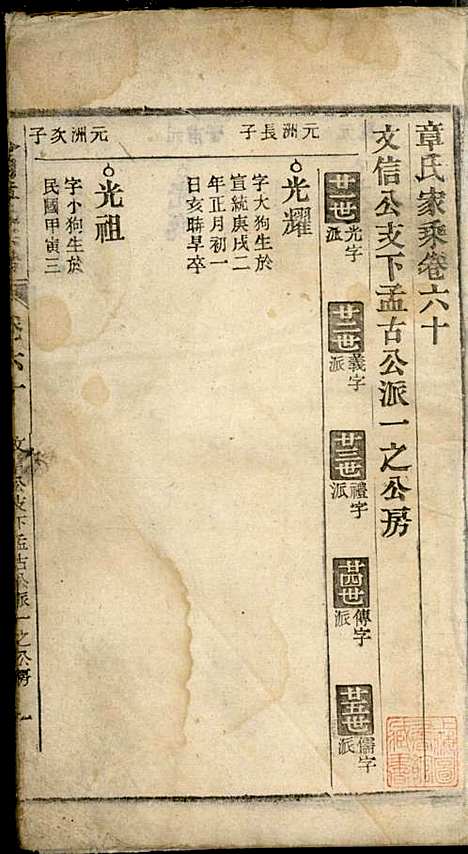 章氏家乘卷六十
文信公支下孟古公派一之公房
廿一世光字派
廿二世義字派
廿三世禮字派
廿四世傳字派
廿五世儒字派
元洲長子
光耀
字大狗生於
宣統庚戌二
年正月初一
日亥聯早卒
元洲次子
光祖
字小狗生於
民國甲寅三
卷六十
文信公支下孟古公派一之公房